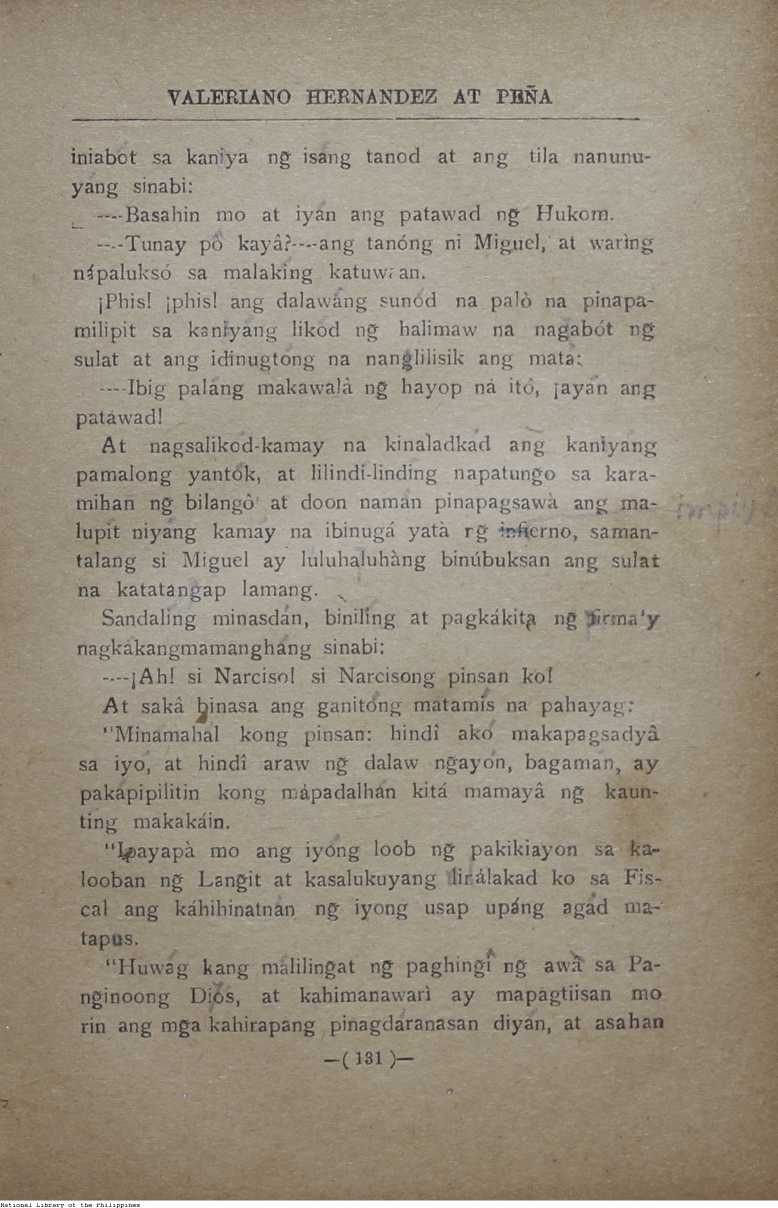 VALERIANO HERNANDEZ AT PEÑA
iniabót sa kaniya ng̃ isáng tanod at ang tila nanunu-
yáng sinabi:
----Basahin mo at iyán ang patawad ng̃ Hukom.
----Tunay pô kayâ?----ang tanóng ni Miguel, at waring
nápaluksó sa malaking katuwaan.
¡Phis! ¡phis! ang dalawáng sunód na palò na pinapa-
milipit sa kaniyáng likód ng̃ halimaw na nagabót ng̃
sulat at ang idinugtóng na nanglilisik ang mata:
----Ibig paláng makawalà ng̃ hayop na itó, ¡ayán ang
patáwad!
At nagsalikod-kamay na kinaladkád ang kaniyáng
pamalong yantók, at lilindí-linding napatung̃o sa kara-
mihan ng̃ bilangò at doon namán pinapagsawà ang ma-
lupít niyáng kamay na ibinugá yatà ng̃ infierno, saman-
talang si Miguel ay luluhaluhàng binúbuksan ang sulat
na katatangap lamang.
Sandaling minasdán, biniling at pagkákita ng̃ firma'y
nagkákangmamanghang sinabi:
----¡Ah! si Narciso! si Narcisong pinsan ko!
At sakâ binasa ang ganitóng matamís na pahayag:
"Minamahál kong pinsan: hindî akó makapagsadyâ
sa iyo, at hindî araw ng̃ dalaw ng̃ayón, bagamán, ay
pakápipilitin kong mápadalhán kitá mamayâ ng̃ kaun-
ting makakáin.
"Ipayapà mo ang iyóng loob ng̃ pakikiayon sa ka-
looban ng̃ Langit at kasalukuyang linálakad ko sa Fis-
cal ang káhihinatnán ng̃ iyong usap upáng agád ma-
tapus.
"Huwág kang málilingat ng̃ paghingî ng̃ awà sa Pa-
ng̃inoong Diós, at kahimanawarì ay mapagtiisan mo
rin ang mg̃a kahirapang pinagdáranasan diyán, at asahan
—( 131 )—
National Library of the Philippines